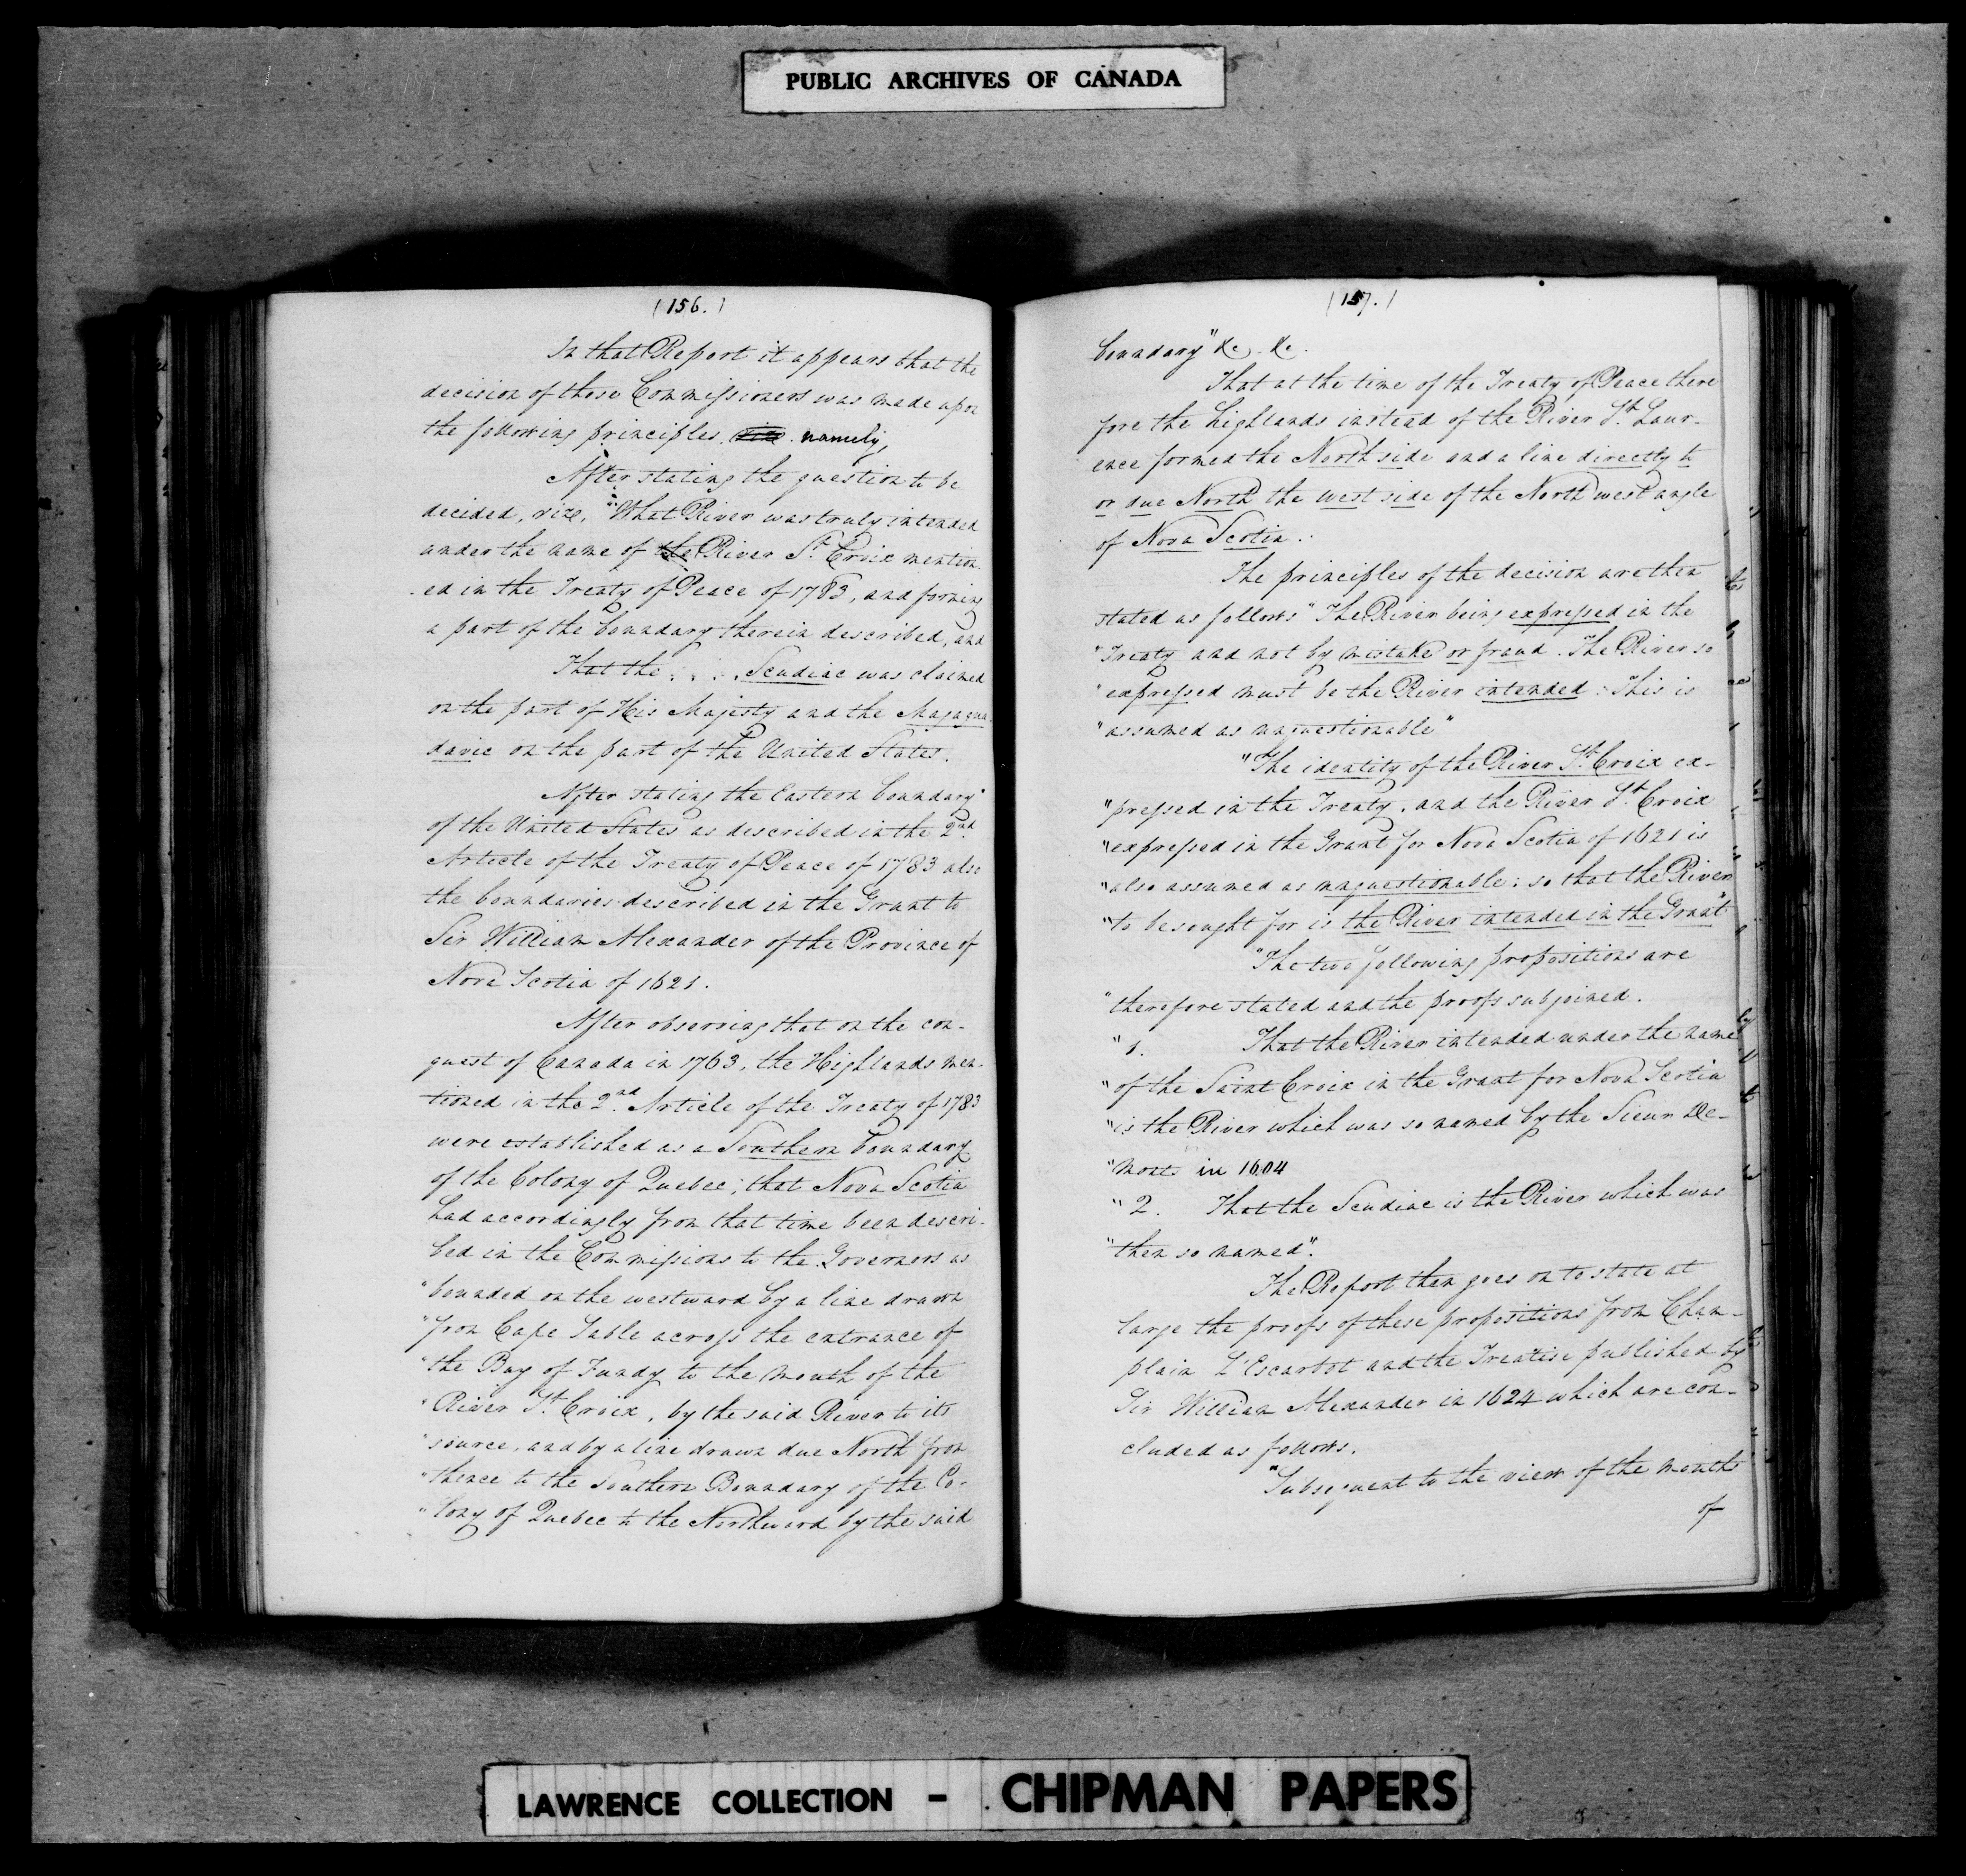 PUBLIC ARCHIVES OF CANADA
(156.)
In that Report it appears that the
decision of those Commissioners was made upon
the following principles. namely,
After stating the question to be
decided, vizt. "What River was truly intended
under the name of the River St. Croix mention-
ed in the Treaty of Peace of 1783, and forming
a part of the boundary therein described, and
That the . . . . Scudiac was claimed
on the part of His Majesty and the Magagua-
davic on the part of the United States.
After stating the Eastern boundary
of the United States as described in the 2nd.
Article of the Treaty of Peace of 1783 also
the boundaries described in the Grant to
Sir William Alexander of the Province of
Nova Scotia of 1621.
After observing that on the con-
quest of Canada in 1763, the Highlands men-
tioned in the 2nd. Article of the Treaty of 1783
were established as a Southern boundary
of the Colony of Quebec; that Nova Scotia
had accordingly from that time been descri-
bed in the Commissions to the Governors as
"bounded on the westward by a line drawn
"from Cape Sable across the entrance of
"the Bay of Fundy to the mouth of the
"River St. Croix, by the said River to its
"source, and by a line drawn due North from
"thence to the Southern Boundary of the Co-
"lony of Quebec to the Northward by the said
(157.)
boundary" &c. &c.
That at the time of the Treaty of Peace there
fore the highlands instead of the River St. Laur-
ence formed the North side and a line directly to
or due North the west side of the North west angle
of Nova Scotia.
The principles of the decision are then
stated as follows "The River being expressed in the
"Treaty and not by mistake or fraud. The River so
"expressed must be the River intended: This is
"assumed as unquestionable"
"The identity of the River St. Croix ex-
"pressed in the Treaty, and the River St. Croix
"expressed in the Grant for Nova Scotia of 1621 is
"also assumed as unquestionable: so that the River
"to be sought for is the River intended in the Grant"
"The two following propositions are
"therefore stated and the proofs subjoined.
"1. That the River intended under the name
"of the Saint Croix in the Grant for Nova Scotia
"is the River which was so named by the Sieur De-
"Monts in 1604
"2. That the Scudiac is the River which was
"then so named".
The Report then goes on to state at
large the proofs of these propositions from Cham-
plain L'Escarbot and the Treatise published by
Sir William Alexander in 1624 which are con-
cluded as follows.
"Subsequent to the view of the mouths
of
LAWRENCE COLLECTION - CHIPMAN PAPERS